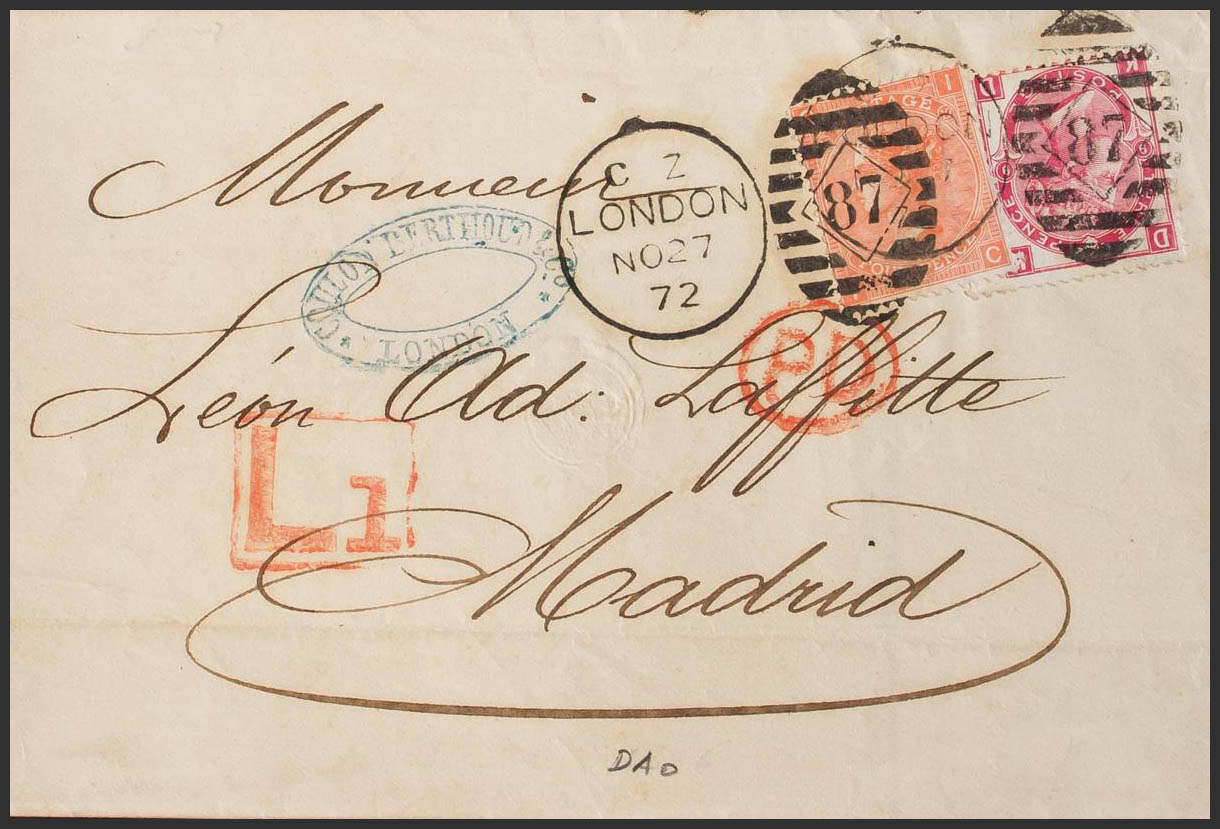 Monsieur
Léon Ad: Laffitte
Madrid
C Z
LONDON
NO27
72
COULON BERTHOUD & Co
LONDON
87
POSTAGE
FOUR PENCE
I
C
87
D
K
PD
L1
DAO